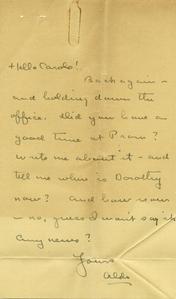 Hello Carolo!
Back again -
and holding down the
office. Did you have a
good time at Prom?
Write me about it - and
tell me where is Dorothy
now? And how is our
- no, guess I won't say it
Any news?
Yours
Aldo